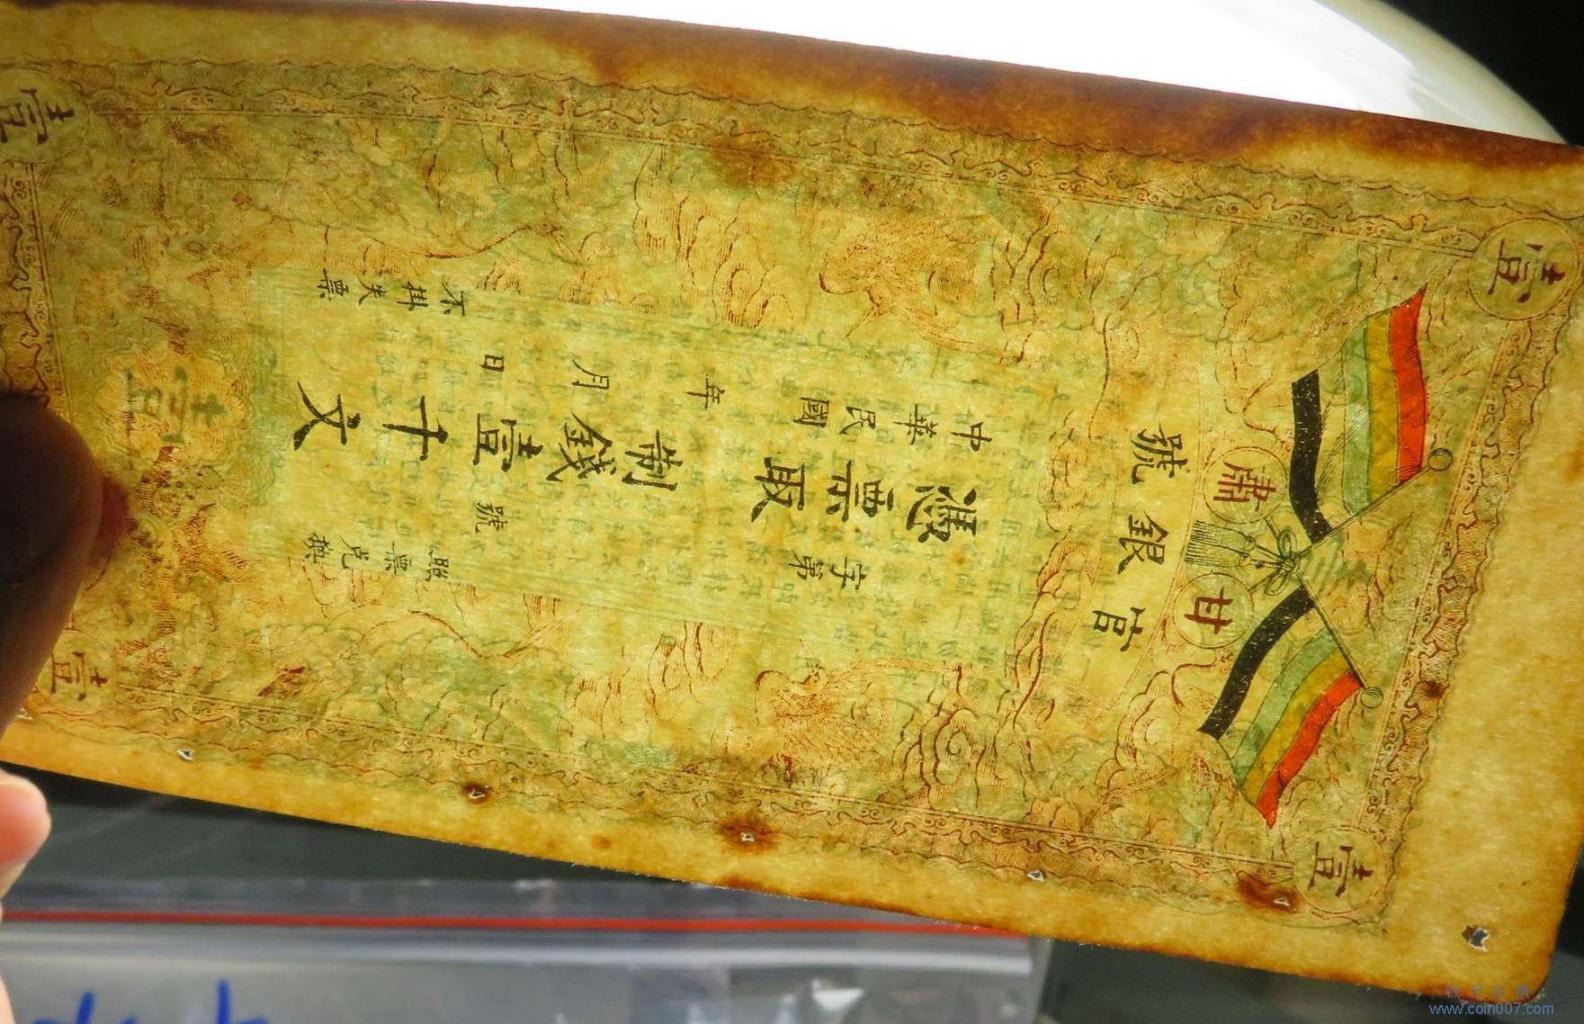 壹
壹
甘肅
官銀號
字第 號
照票兌換
憑票取
制錢壹千文
中華民國 年 月 日
不掛失票
壹
壹
壹
www.coin007.com